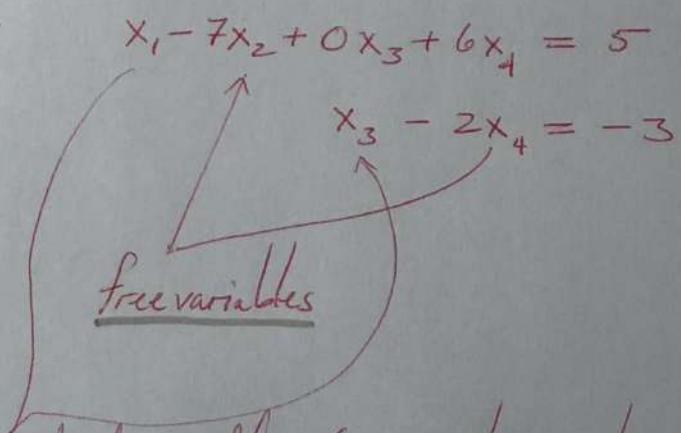 x₁ - 7x₂ + 0x₃ + 6x₄ = 5
x₃ - 2x₄ = -3
free variables